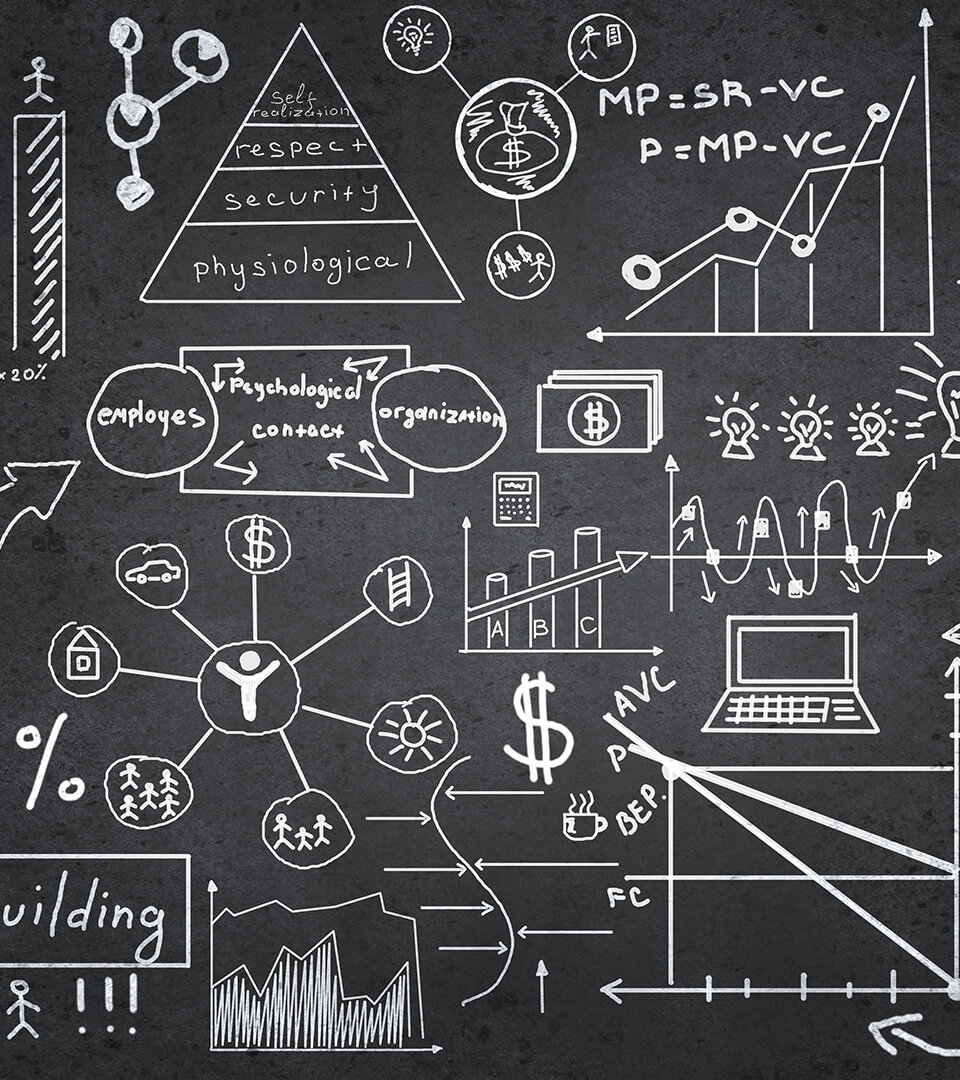 Self
realization
respect
security
physiological
$
$$$
MP=SR-VC
P=MP-VC
x20%
employes
Psychological
contact
organization
$
$
A
B
C
$
%
AVC
P
BEP.
FC
uilding
!!!